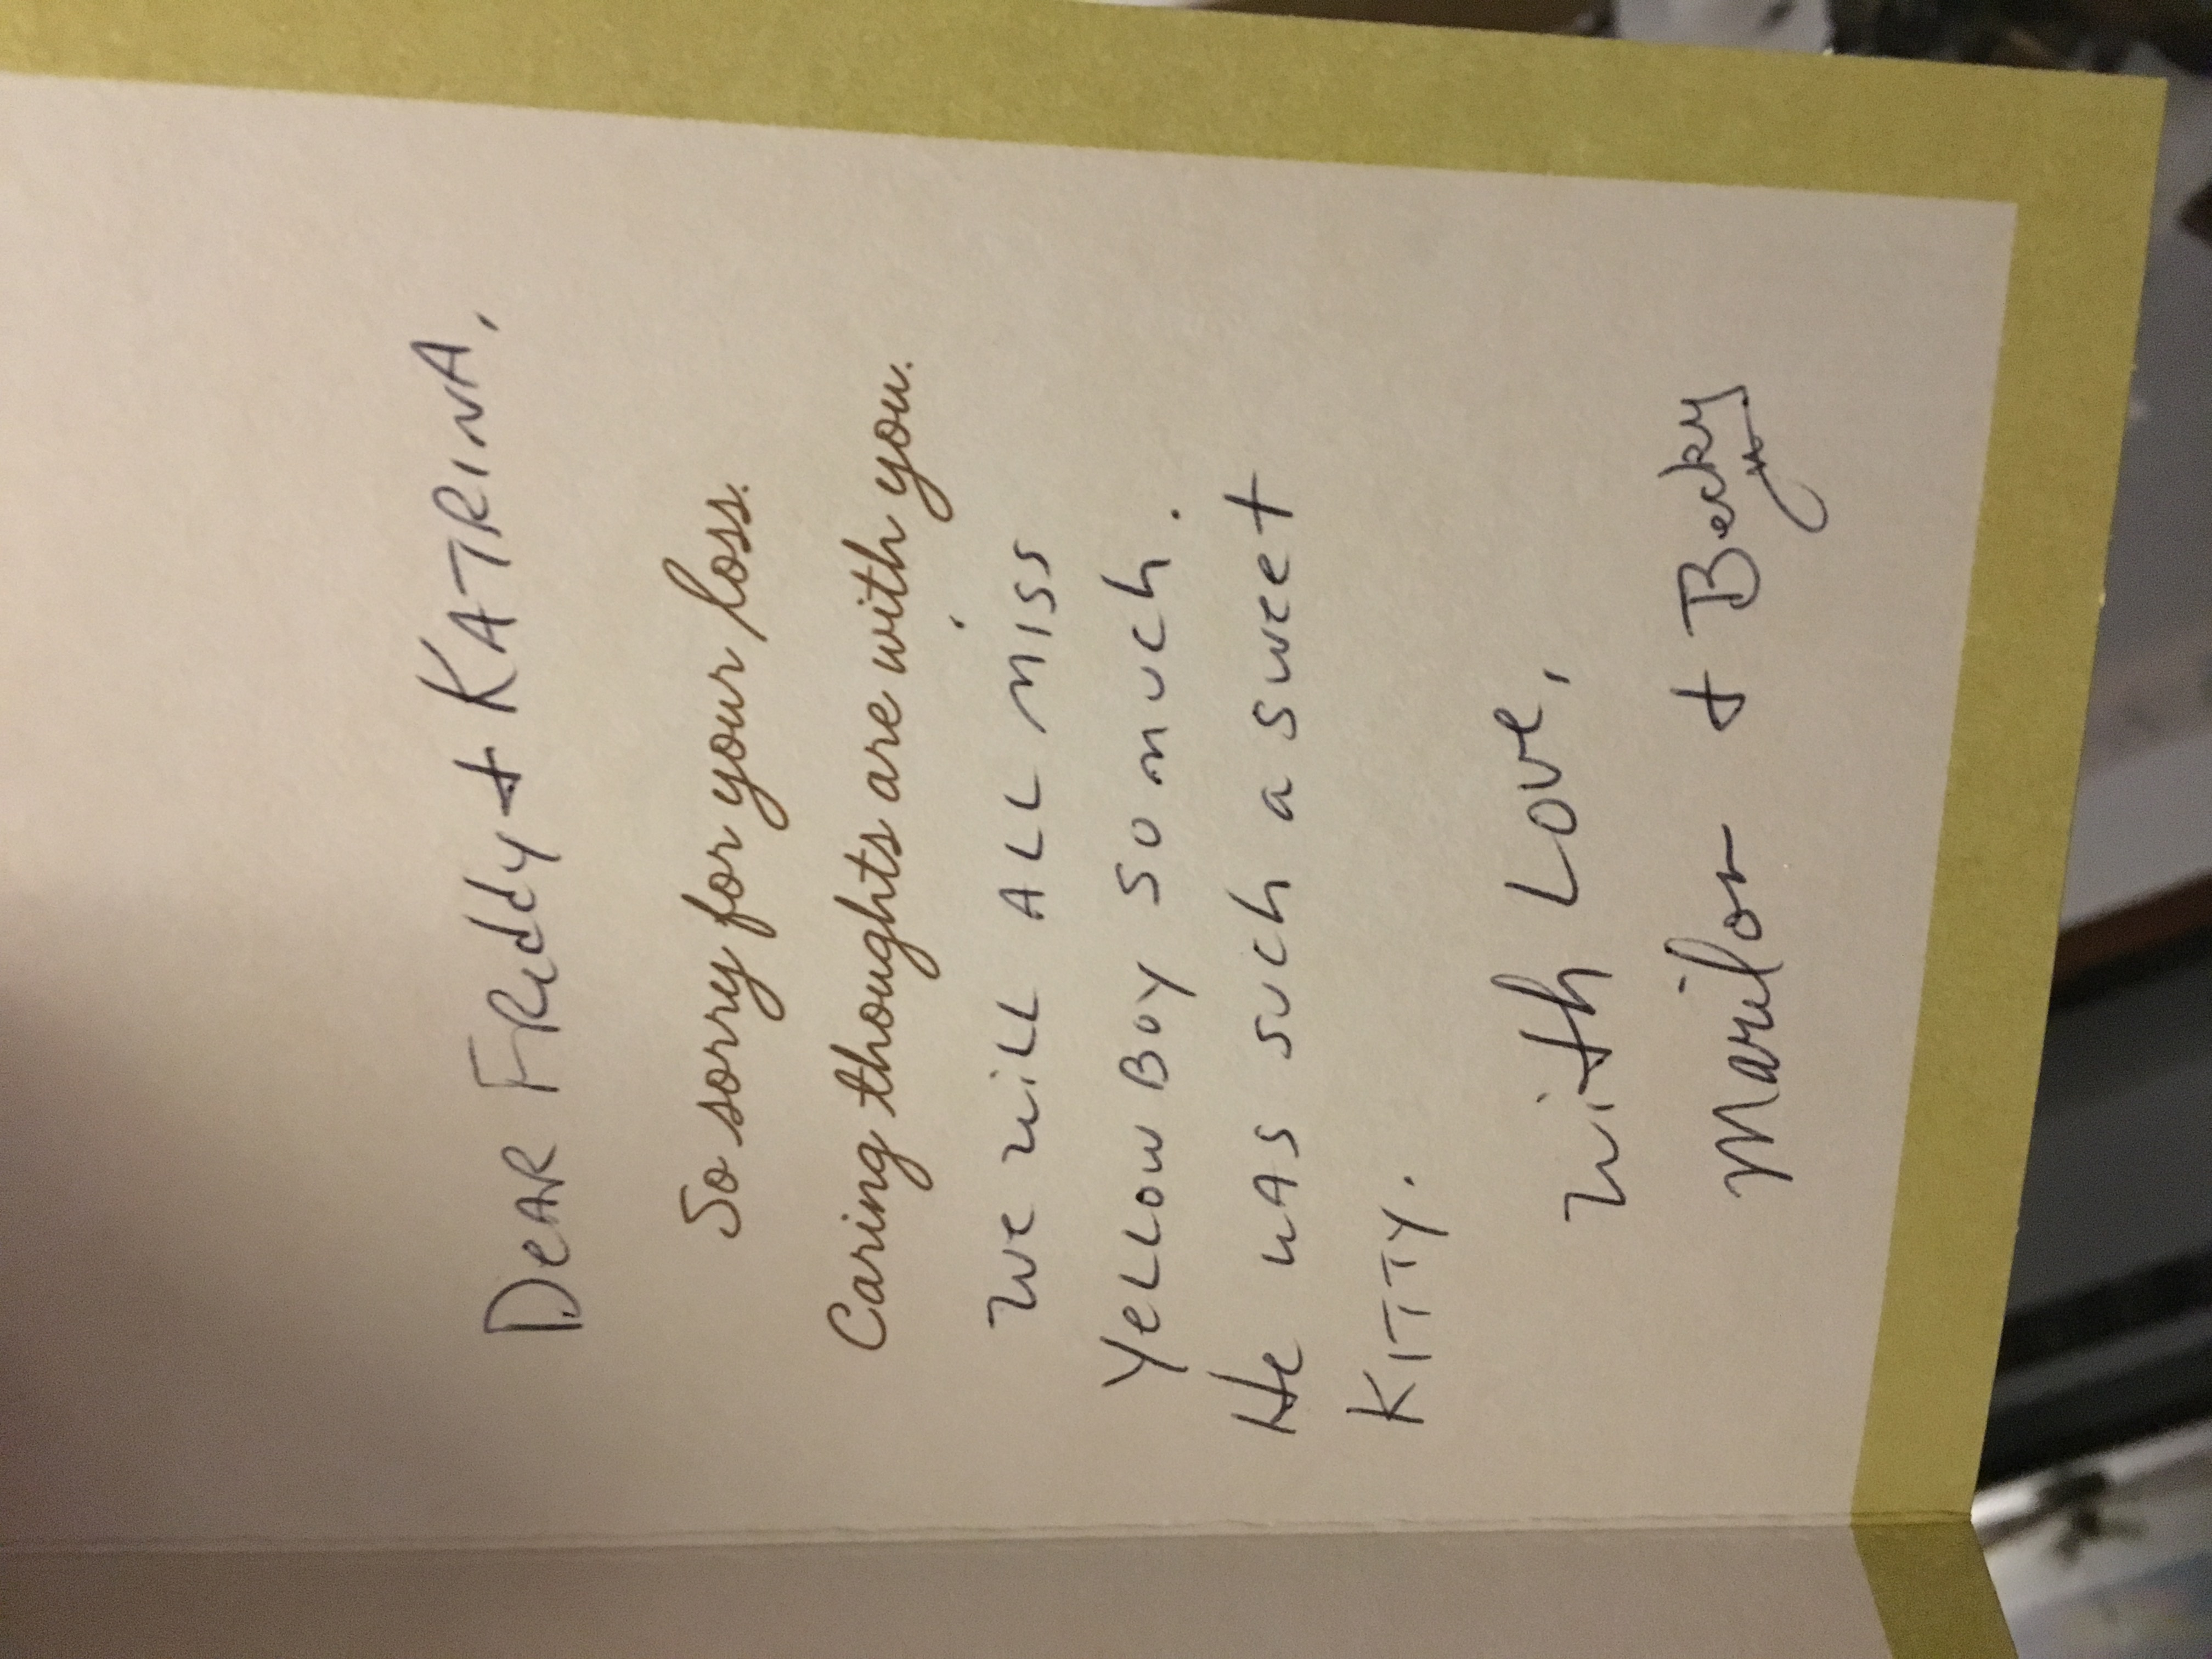 DEAR FREddy + KATRINA,
So sorry for your loss.
Caring thoughts are with you.
We will ALL MISS
YeLLOW BOY SO MUCH.
He WAS SUCH a SWeet
KITTY.
With Love,
Marilon + Becky